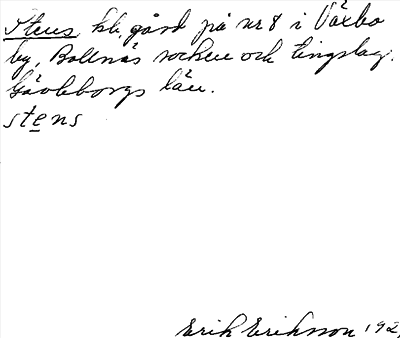 Stens kh, gård på nr 8 i Växbo
by, Bollnäs socken och tingslag.
Gävleborgs län.
stens
Erik Eriksson 192